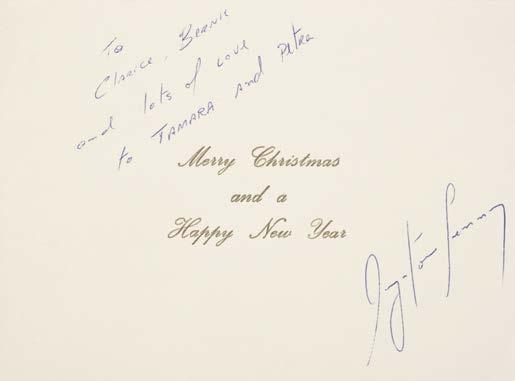 To
Clarice, Bernie
and lots of love
to TAMARA and Petra
Merry Christmas
and a
Happy New Year